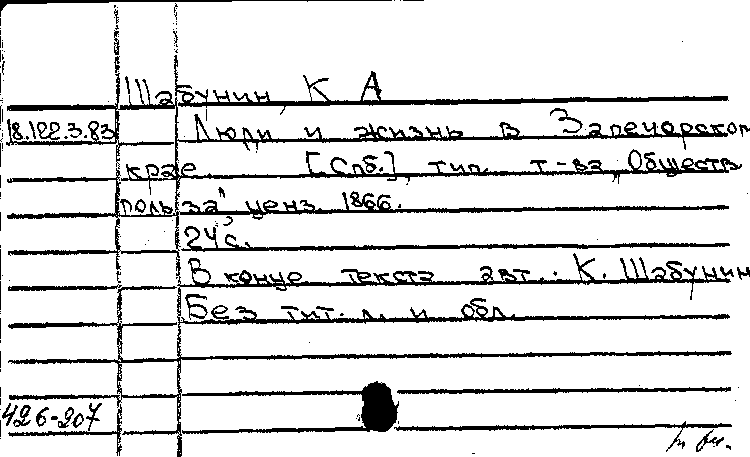 Шабунин, К А
18.122.3.83 Люди и жизнь в Запечорском
крае [Спб.], тип. т-ва „Обществ
польза", ценз. 1866.
24 с.
В конце текста авт.: К. Шабунин
Без тит. л. и обл.
426-207